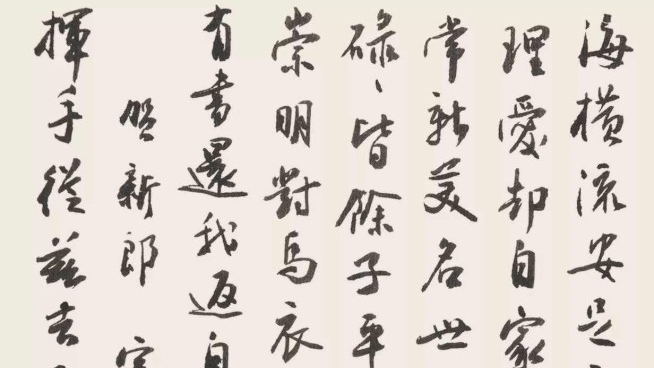 海横流安足
理爱却自家
常新美名世
碌〻皆餘子平
崇明對烏衣
有書還我返自
賀新郎 寄
揮手從茲去